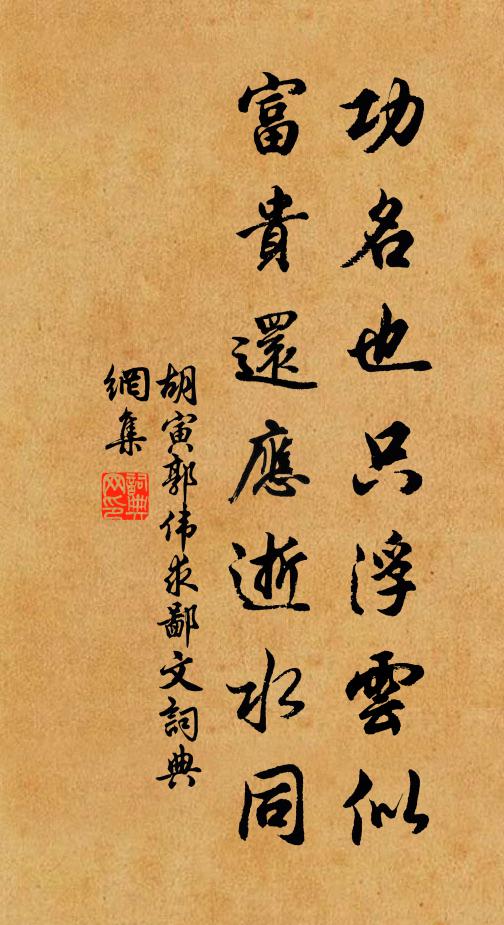 功名也只浮雲似
富貴還應逝水同
胡寅郭伟求鄙文詞典
網集
詞典
网印